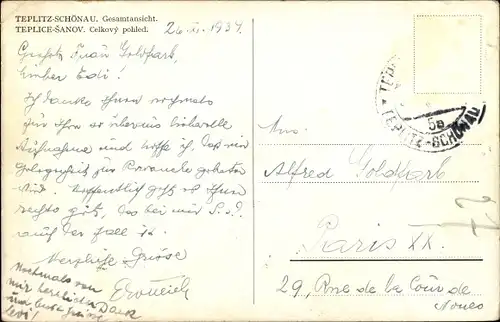 TEPLITZ-SCHÖNAU. Gesamtansicht.
TEPLICE-ŠANOV. Celkový pohled.
Geehrte Frau Goldfarb,
Lieber Edi!
Ich danke Ihnen nochmals
für Ihre so überaus liebevolle
Aufnahme und hoffe ich, daß mir
Gelegenheit zur Revanche geboten
wird. Hoffentlich geht es Ihnen
rechts gut, das bei mir G. s. D.
auf der Fall ist.
Herzliche Grüsse
Nochmals von
mir herzlichen Dank
und
TEPLITZ-SCHÖNAU
5a
Alfred Goldfarb
Paris XX.
29, Rue de la Cour de
Noues